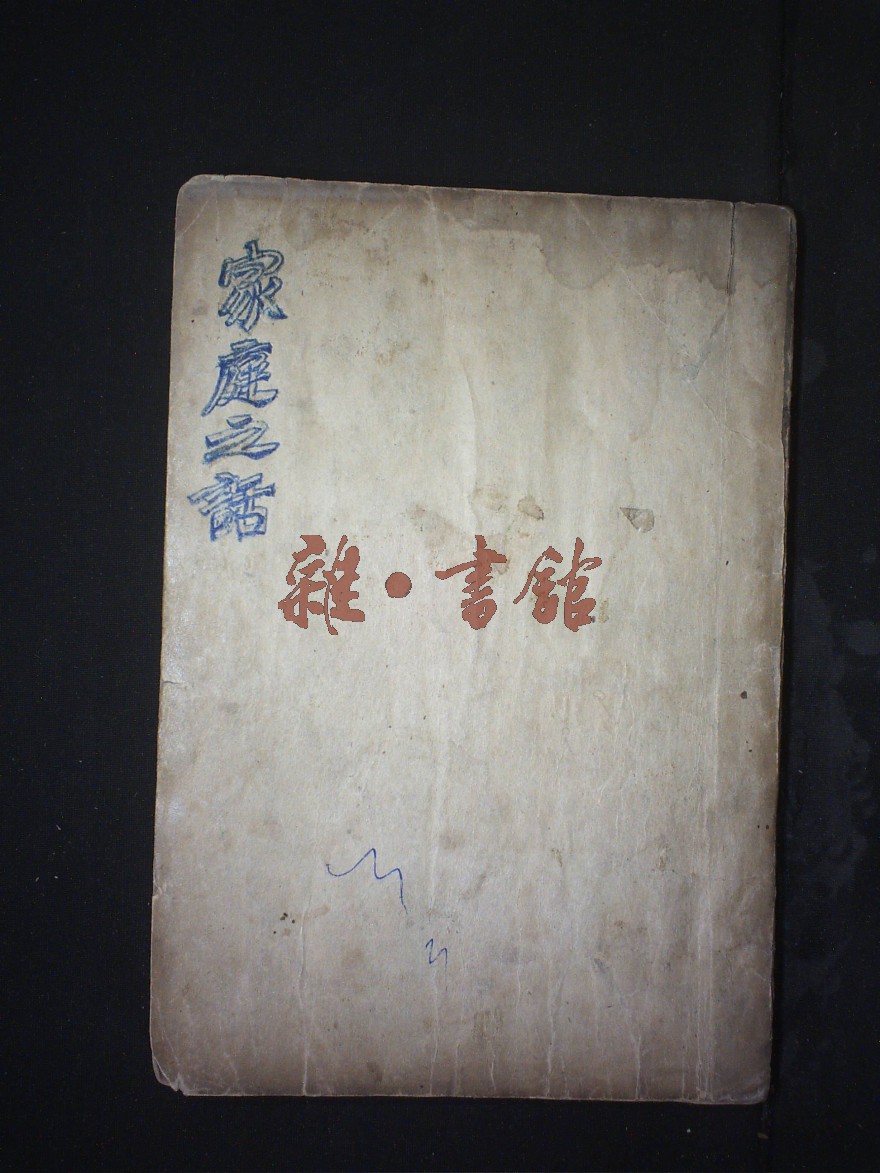 家庭之話
雜·書館